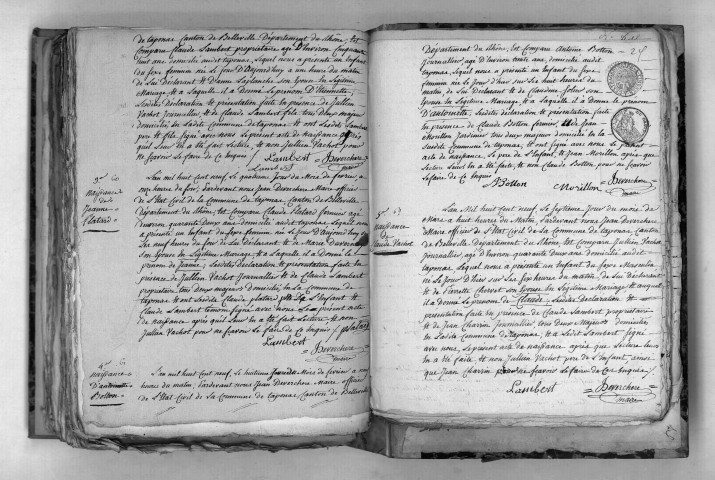 de taponas Canton de Belleville Département du Rhône, Est
Comparu Claude Lambert propriétaire agé D'Environ Cinquante
huit ans domicilié audit taponas, Lequel nous a présenté un Enfant
du sexe féminin née le jour D'aujourdhuy a une heure du matin
de Lui Déclarant Et D'anne Laplanche son Epouse En Légitime
Mariage Et a Laquelle il a donné le prénom
Lesdites Déclaration Et présentation faite En présence de Jullien
Vachot Journallier Et de Claude Lambert fils tous deux majeurs
domiciliés En Ladite Commune de taponas Et ont Lesdits Lambert
père Et fils signé avec nous le présent acte de naissance après
quil Leur En a été fait Lecture Et non Jullien Vachot pour
ne savoir le faire de Ce Enquis
Lambert
Lambert
Devershere
maire
3e
Naissance
de
Jeanne
platard
L'an mil huit Cent neuf, Le quatrième jour du Mois de février a
une heure du soir, pardevant nous Jean Devershere Maire officier
de l'Etat Civil de La Commune de taponas, Canton de Belleville
Département du Rhône, Est Comparu Claude platard fermier agé
D'environ quarante deux ans domicilié audit taponas, Lequel nous
a présenté un Enfant du sexe féminin née le Jour D'aujourdhuy
neuf heures du de Lui Déclarant Et de Marie
son Epouse En Légitime Mariage Et a Laquelle il a Donné le
prénom de Jeanne, Lesdites Déclaration Et présentation faite En
présence Jullien Vachot Journallier Et de Claude Lambert
propriétaire, tous deux majeurs Domiciliés En La Commune de
taponas Et ont Lesdits Claude platard père de l'Enfant Et
Claude Lambert témoin signé avec nous le présent acte
de naissance après quil Leur En a été fait Lecture Et non
Jullien Vachot pour ne savoir le faire de Ce Enquis
platard
Lambert
Devershere
maire
4e
Naissance
D'antoinette
Botton
L'an mil huit Cent neuf, Le huitième jour du Mois de février a neuf
heures du matin, pardevant nous Jean Devershere Maire officier
de l'Etat Civil de La Commune de taponas, Canton de Belleville
Département du Rhône, Est Comparu Antoine Botton
Journallier agé D'environ trente ans, domicilié audit
taponas, Lequel nous a présenté un Enfant du sexe
féminin née le Jour d'hier six heures du
matin de Lui Déclarant Et de Claudine
Epouse En Légitime Mariage, Et a Laquelle il a donné le prénom
D'antoinette, Lesdites déclaration Et présentation faite
En présence de Claude Botton fermier, Et de Jean
Morillon Jardinier tous deux majeurs domiciliés En La
Susdite Commune de taponas, Et ont signé avec nous le présent
acte de naissance, le père de l'Enfant, Et Jean Morillon après que
Lecture Leur En a été faite, Et non Claude Botton pour ne savoir
le faire de Ce Enquis
Botton
Morillon
Devershere
maire
5e
Naissance
de
Claude Vachot
L'an Mil huit Cent neuf, Le septième Jour du mois de
Mars a huit heures du Matin, pardevant nous Jean Devershere
Maire officier de l'Etat Civil de La Commune de taponas, Canton
de Belleville Département du Rhône, Est Comparu Jullien Vachot
Journallier agé D'environ quarante deux ans domicilié audit
taponas, Lequel nous a présenté un Enfant du sexe Masculin
né le Jour d'hier sur les six heures du matin, de Lui déclarant
Et de son Epouse En Légitime Mariage Et auquel
il a donné le prénom de Claude, Lesdites Déclaration Et
présentation faite En présence de Claude Lambert propriétaire
Et de Jean Charvin Journallier tous deux Majeurs domiciliés
En Ladite Commune de taponas, Et a Ledit Lambert signé
avec nous, Le présent acte de naissance, après que Lecture Leur
En a été faite Et non Jullien Vachot père de l'Enfant, ainsi
que Jean Charvin pour ne savoir le faire de Ce Enquis
Lambert
Devershere
maire